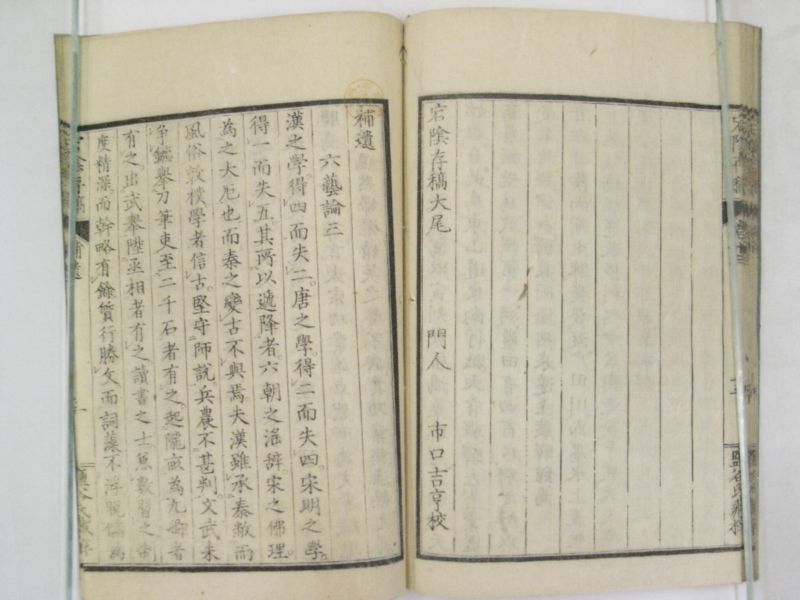 宕陰存稿大尾
門人 市口吉亨校
補遺
六藝論三
漢之學得四而失二唐之學得二而失四宋明之學
得一而失五其所以遞降者六朝之滛辭宋之佛理
為之大厄也而秦之變古不與焉夫漢雖承秦敝而
風俗敦樸學者信古堅守師說兵農不甚判文武未
爭鑣舉刀筆吏至二千石者有之起隴畝為九卿者
有之出武舉陛丞相者有之讀書之士無數習之
度精深而幹略有餘質行勝文而詞藻不浮